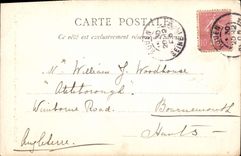 CARTE POSTALE
Ce côté est exclusivement réservé
Mr William G. Woodhouse
Attleborough
Winborne Road.
Bournemouth
Hants
Angleterre.